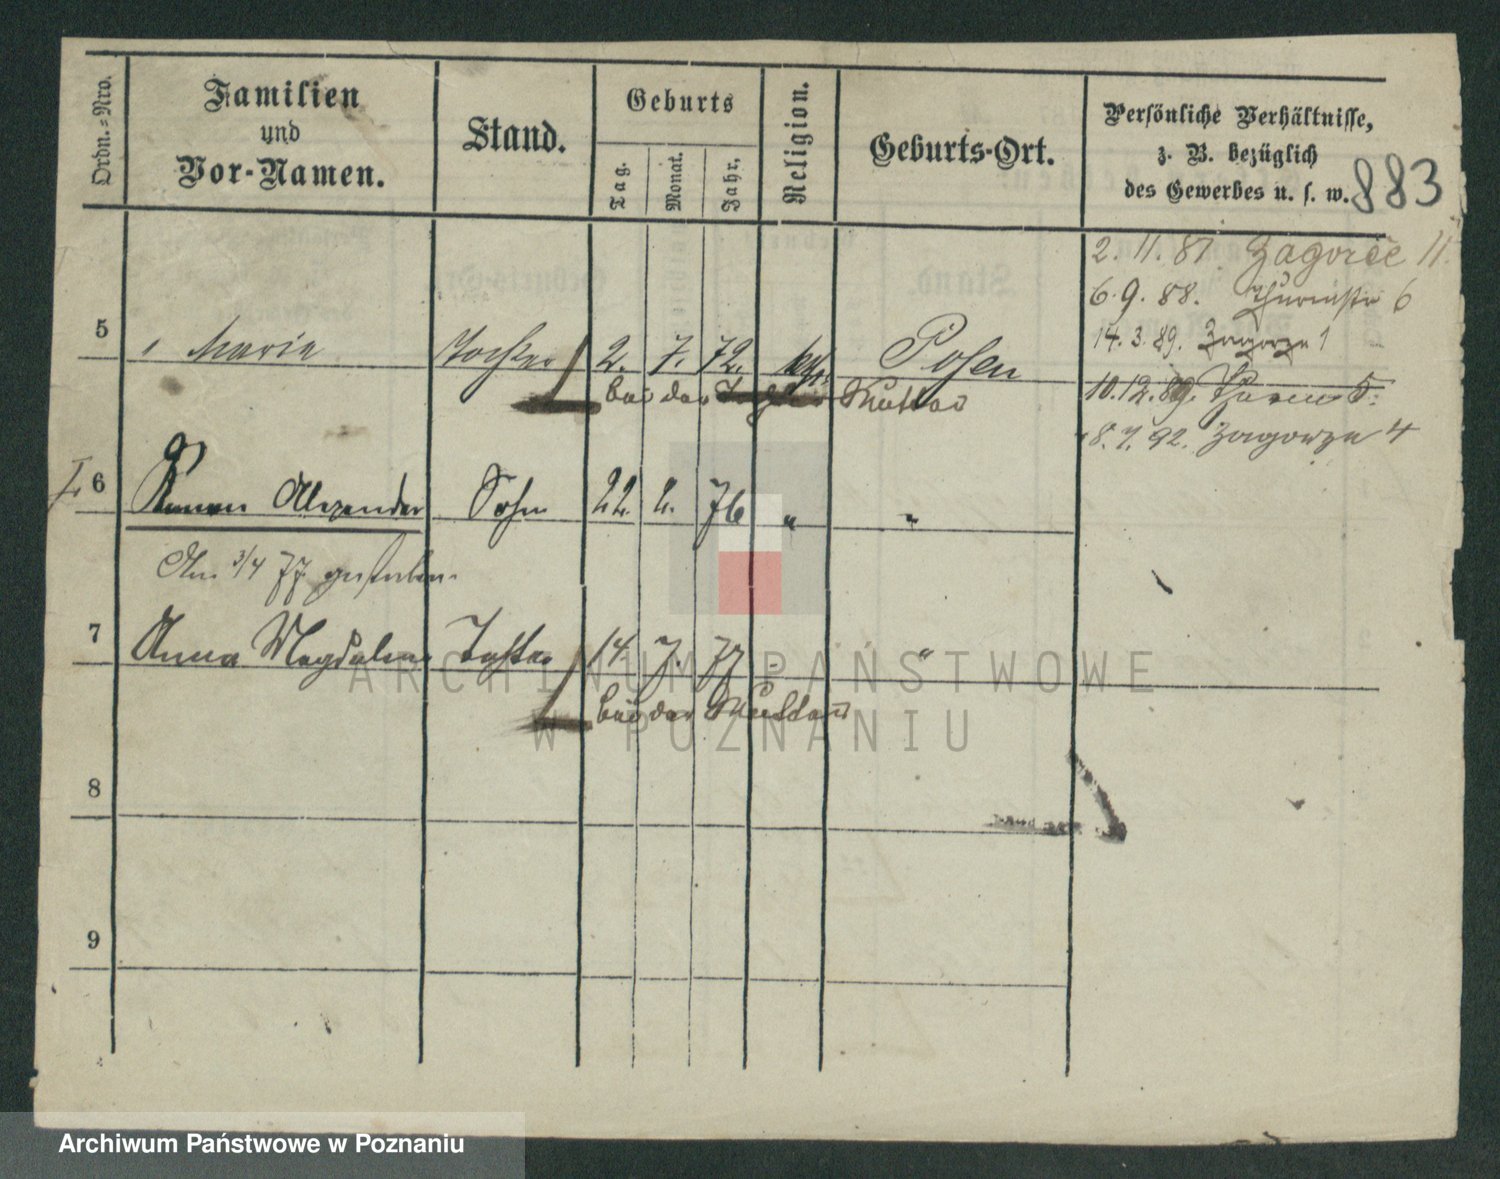 Ordn.-Nro.
Familien
und
Vor-Namen.
Stand.
Geburts
Tag.
Monat.
Jahr.
Religion.
Geburts-Ort.
Persönliche Verhältnisse,
z. B. bezüglich
des Gewerbes u. s. w.
883
2. 11. 87. Zagorze 11.
6. 9. 88. 6
14. 3. 89. Zagorze 1
5 Maria Tochter 2. 7. 72. kath. Posen
bei der Tochter Mutter
10. 12. 89. 5.
8. 7. 92. Zagorze 4
I. 6 Roman Alexander Sohn 22. 2. 76 " "
Am 3/4 77 gestorben.
7 Anna Magdalena Tochter 14. 7. 77 - "
bei der Mutter
8
9
ARCHIWUM PAŃSTWOWE
W POZNANIU
Archiwum Państwowe w Poznaniu